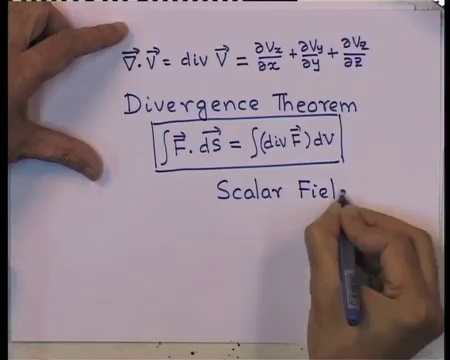 ∇⃗.V⃗ = div V⃗ = ∂Vx/∂x + ∂Vy/∂y + ∂Vz/∂z
Divergence Theorem
∫F⃗.dS⃗ = ∫(div F⃗)dV
Scalar Fiel